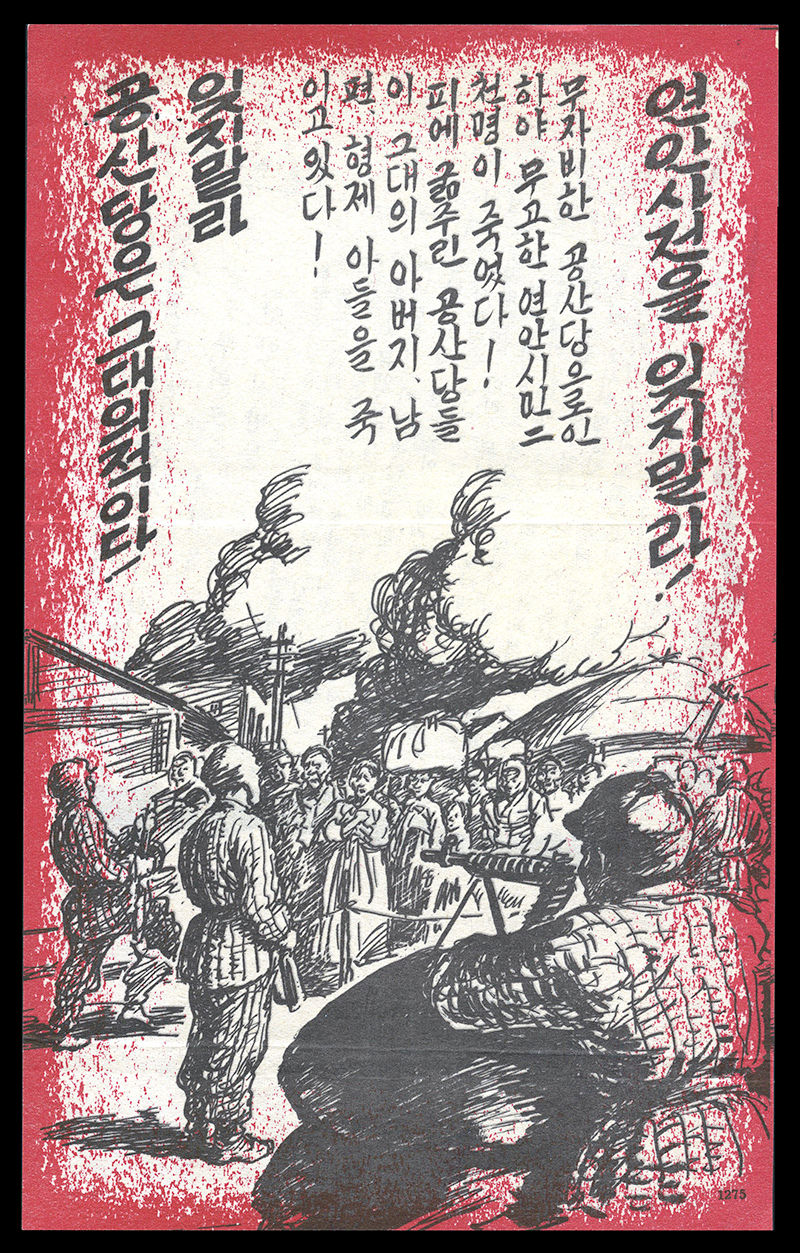 연안사건을 잊지말라!
무자비한 공산당으로인
하야 무고한 연안시민 二
천명이 죽었다!
피에 굶주린 공산당들
이 그대의 아버지, 남
편, 형제 아들을 죽
이고있다!
잊지말라
공산당은 그대의적이다!
1275